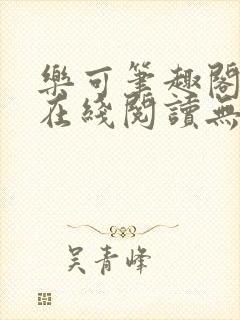 樂可筆趣閣
在綫閱讀無
吳青峰